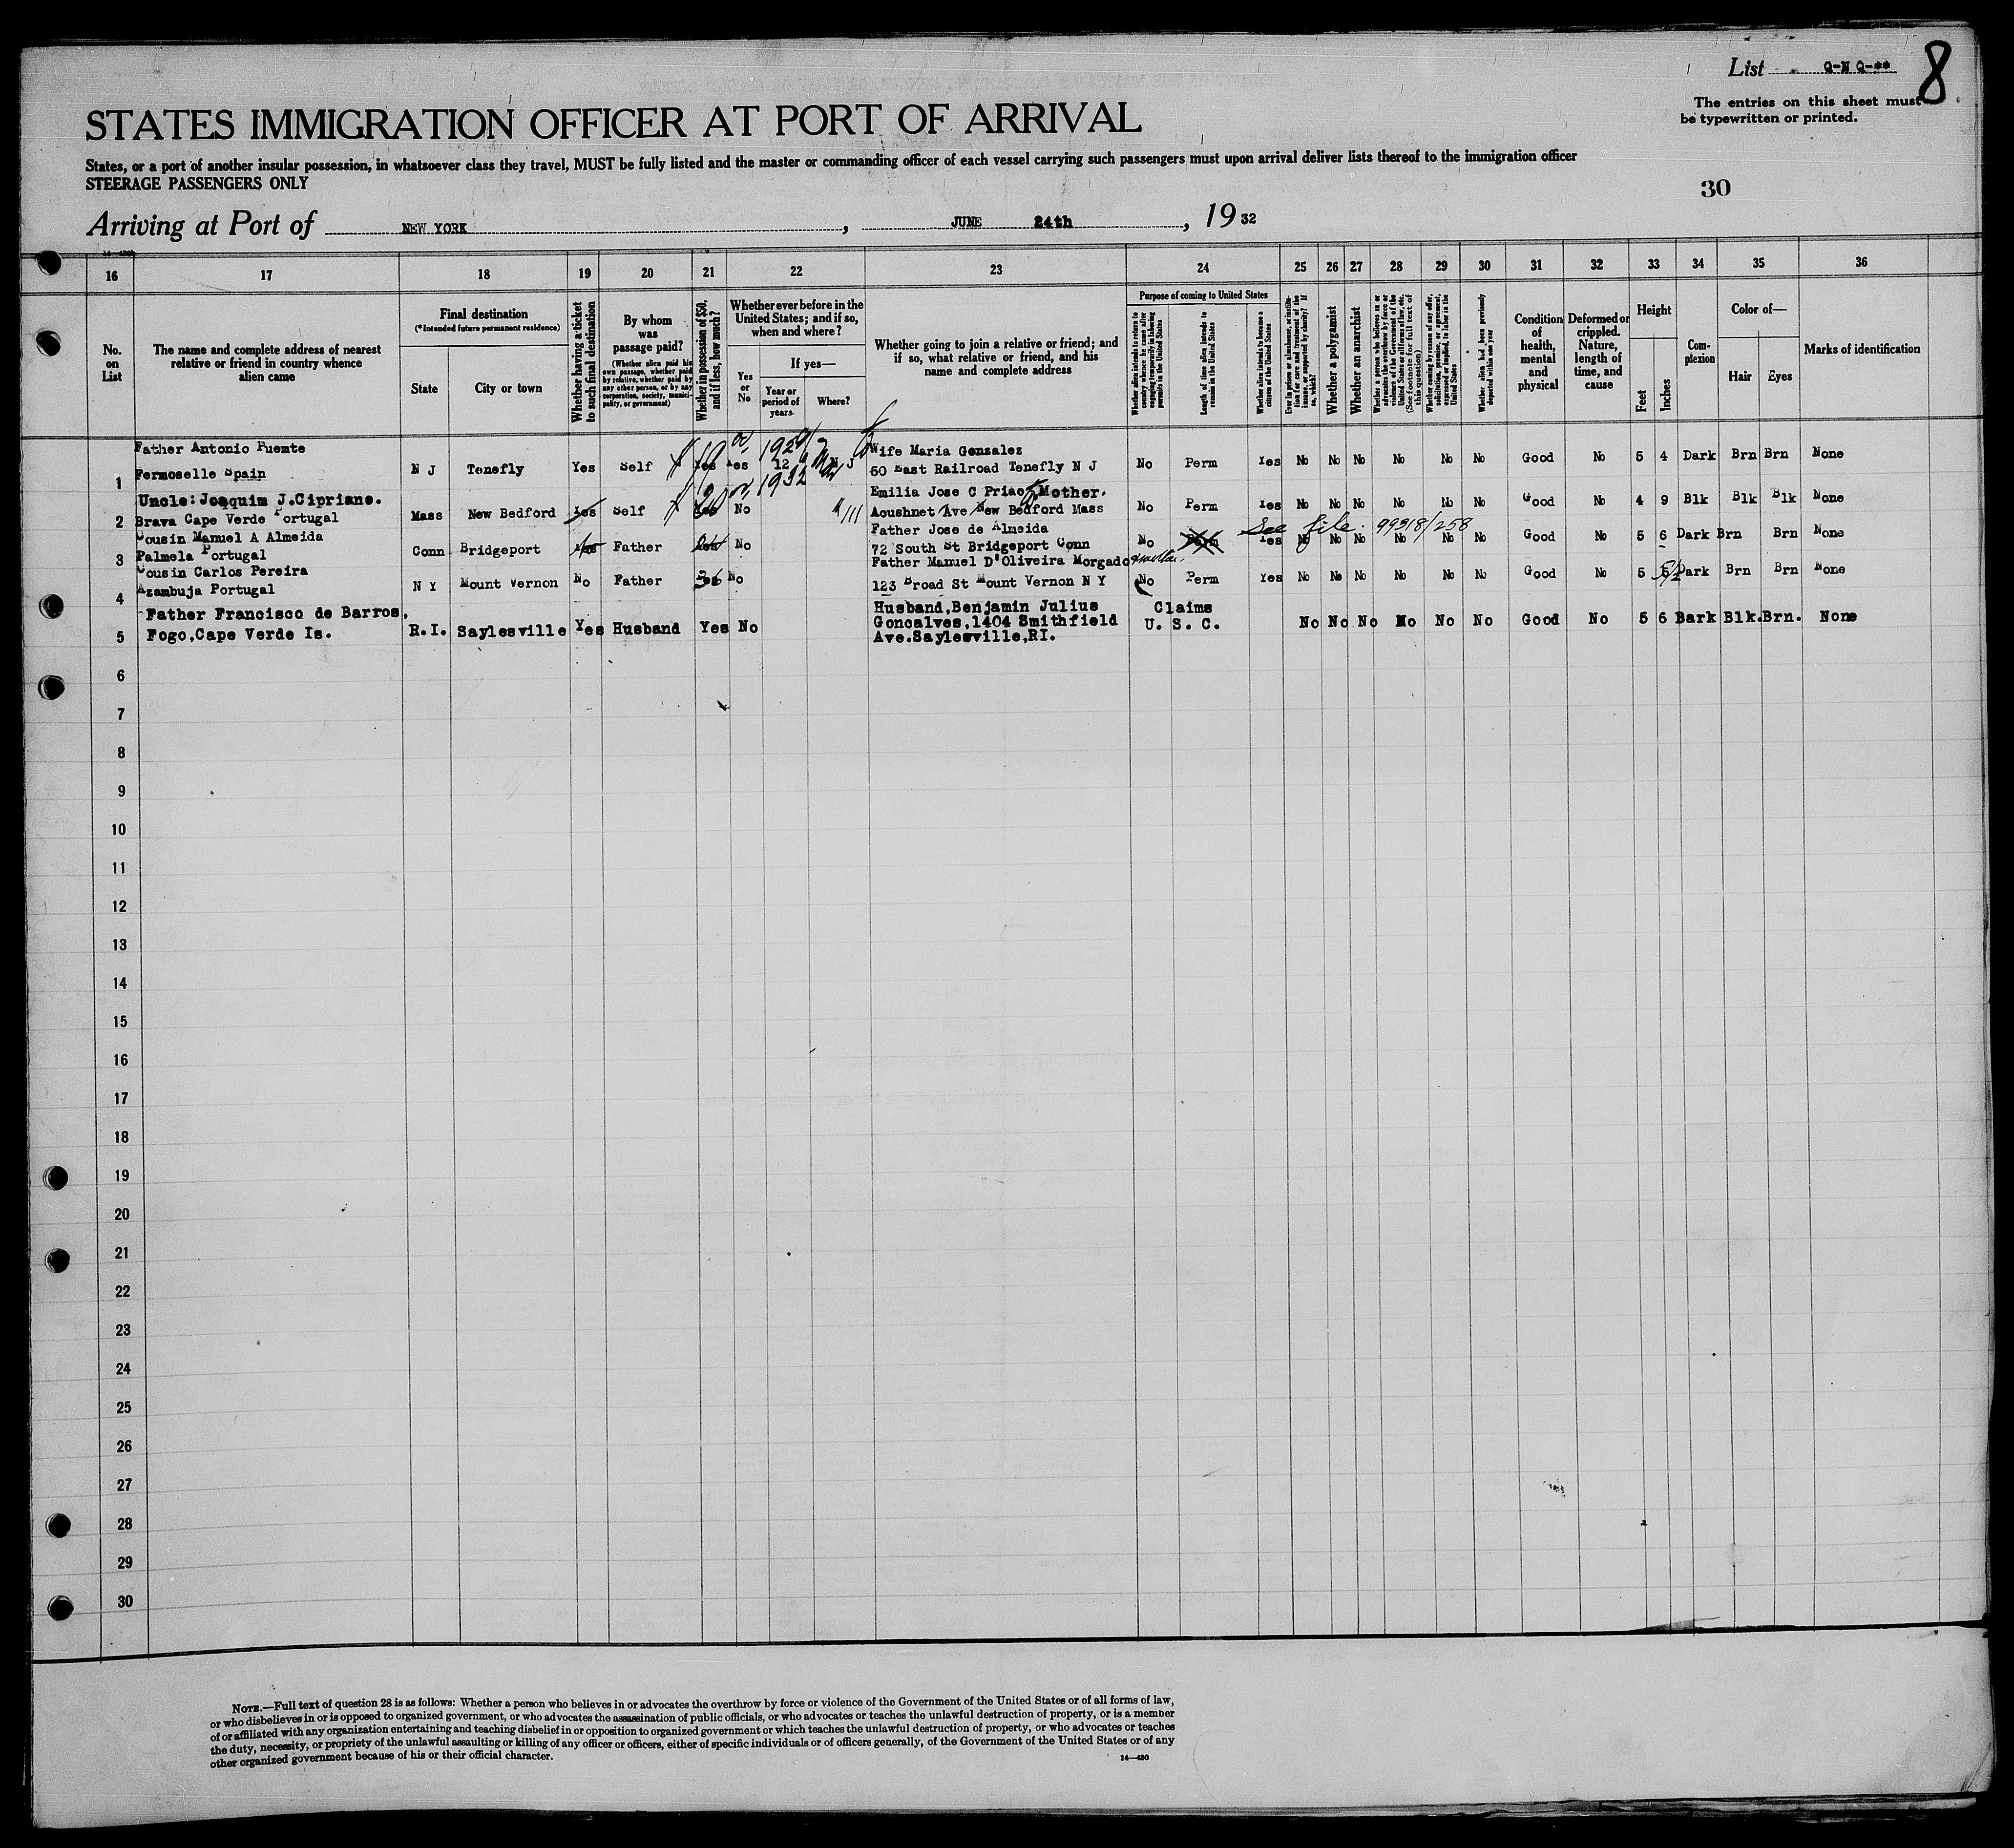 List Q-N Q-**
8
The entries on this sheet must
be typewritten or printed.
STATES IMMIGRATION OFFICER AT PORT OF ARRIVAL
States, or a port of another insular possession, in whatsoever class they travel, MUST be fully listed and the master or commanding officer of each vessel carrying such passengers must upon arrival deliver lists thereof to the immigration officer
STEERAGE PASSENGERS ONLY
30
Arriving at Port of NEW YORK, JUNE 24th, 1932
16 17 18 19 20 21 22 23 24 25 26 27 28 29 30 31 32 33 34 35 36
No. on List
The name and complete address of nearest relative or friend in country whence alien came
Final destination
(*Intended future permanent residence)
State
City or town
Whether having a ticket to such final destination
By whom was passage paid?
(Whether alien paid his own passage, whether paid by relative, whether paid by any other person, or by any corporation, society, municipality, or government)
Whether in possession of $50, and if less, how much?
Whether ever before in the United States; and if so, when and where?
Yes or No
If yes—
Year or period of years
Where?
Whether going to join a relative or friend; and if so, what relative or friend, and his name and complete address
Purpose of coming to United States
Whether alien intends to return to country whence he came after engaging temporarily in laboring pursuits in the United States
Length of time alien intends to remain in the United States
Whether alien intends to become a citizen of the United States
Ever in prison or almshouse, or institution for care and treatment of the insane, or supported by charity? If so, which?
Whether a polygamist
Whether an anarchist
Whether a person who believes in or advocates the overthrow by force or violence of the Government of the United States or all forms of law, etc. (See footnote for full text of this question)
Whether coming by reason of any offer, solicitation, promise, or agreement, expressed or implied, to labor in the United States
Whether alien had been previously deported within one year
Condition of health, mental and physical
Deformed or crippled. Nature, length of time, and cause
Height
Feet
Inches
Complexion
Color of—
Hair
Eyes
Marks of identification
Father Antonio Puemte
1 Fermoselle Spain N J Tenefly Yes Self Yes Yes 12 N J
1932
Wife Maria Gonzalez
50 East Railroad Tenefly N J No Perm Yes No No No No No No Good No 5 4 Dark Brn Brn None
Uncle: Joaquim J.Cipriano.
2 Brava Cape Verde Portugal Mass New Bedford Yes Self No
Emilia Jose C Priao Mother.
Acushnet Ave New Bedford Mass No Perm Yes No No No No No No Good No 4 9 Blk Blk Blk None
See file 99318/258
Cousin Manuel A Almeida
3 Palmela Portugal Conn Bridgeport Yes Father No
Father Jose de Almeida
72 South St Bridgeport Conn No Perm Yes No No No No No No Good No 5 6 Dark Brn Brn None
Cousin Carlos Pereira
4 Azambuja Portugal N Y Mount Vernon No Father No
Father Manuel D'Oliveira Morgado
123 Broad St Mount Vernon N Y No Perm Yes No No No No No No Good No 5 Dark Brn Brn None
Father Francisco de Barros,
5 Fogo,Cape Verde Is. R.I. Saylesville Yes Husband Yes No
Husband,Benjamin Julius
Goncalves,1404 Smithfield
Ave.Saylesville,RI.
Claims
U. S. C. No No No No No No Good No 5 6 Dark Blk. Brn. None
6
7
8
9
10
11
12
13
14
15
16
17
18
19
20
21
22
23
24
25
26
27
28
29
30
NOTE.—Full text of question 28 is as follows: Whether a person who believes in or advocates the overthrow by force or violence of the Government of the United States or of all forms of law,
or who disbelieves in or is opposed to organized government, or who advocates the assassination of public officials, or who advocates or teaches the unlawful destruction of property, or is a member
of or affiliated with any organization entertaining and teaching disbelief in or opposition to organized government or which teaches the unlawful destruction of property, or who advocates or teaches
the duty, necessity, or propriety of the unlawful assaulting or killing of any officer or officers, either of specific individuals or of officers generally, of the Government of the United States or of any
other organized government because of his or their official character.
14—430